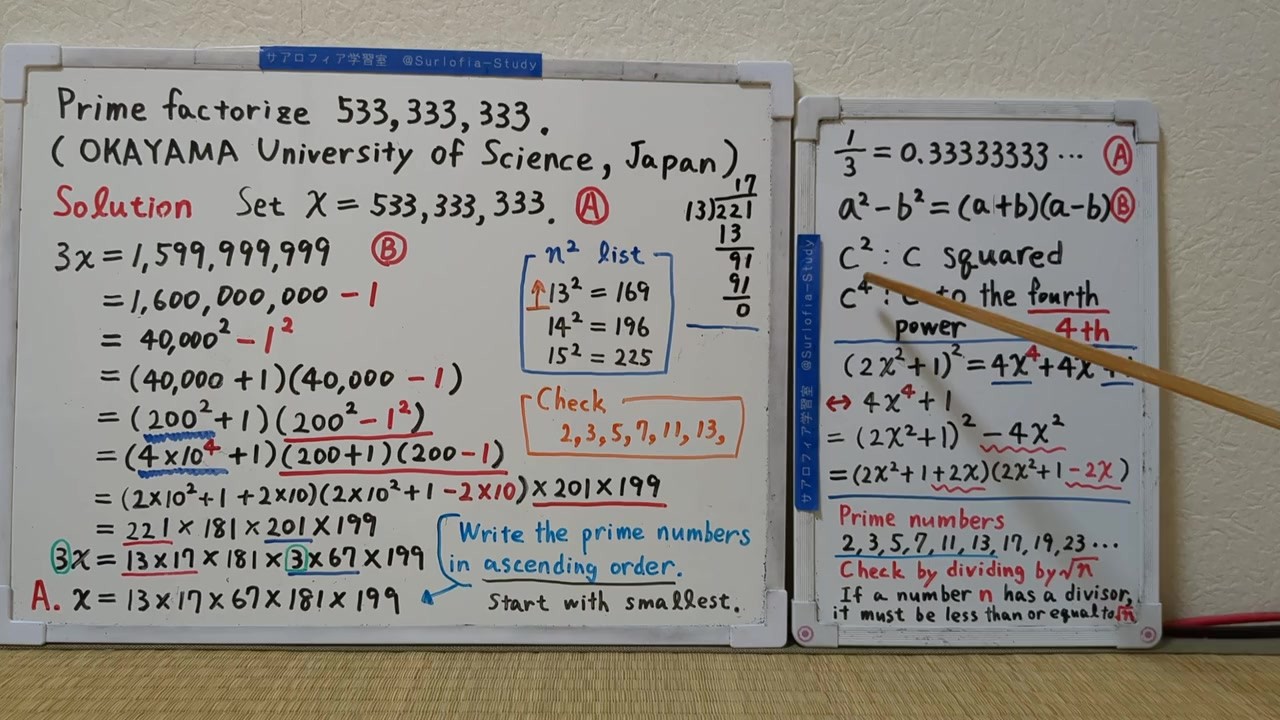 サアロフィア学習室 @Surlofia-Study
Prime factorize 533,333,333.
(OKAYAMA University of Science, Japan)
Solution Set x = 533,333,333. Ⓐ
3x = 1,599,999,999 Ⓑ
= 1,600,000,000 - 1
= 40,000² - 1²
= (40,000 + 1)(40,000 - 1)
= (200² + 1)(200² - 1²)
= (4×10⁴ + 1)(200+1)(200-1)
= (2×10²+1+2×10)(2×10²+1-2×10)×201×199
= 221×181×201×199
3x = 13×17×181×3×67×199
A. x = 13×17×67×181×199
17
13)221
13
91
91
0
n² list
↑13² = 169
14² = 196
15² = 225
Check
2,3,5,7,11,13,
Write the prime numbers
in ascending order.
Start with smallest.
サアロフィア学習室 @Surlofia-Study
1/3 = 0.33333333… Ⓐ
a²-b²=(a+b)(a-b)Ⓑ
C² : C squared
C⁴ : to the fourth
power 4th
(2x²+1)² = 4x⁴+4x
↔ 4x⁴+1
= (2x²+1)² -4x²
=(2x²+1+2x)(2x²+1-2x)
Prime numbers
2,3,5,7,11,13,17,19,23…
Check by dividing by √n
If a number n has a divisor,
it must be less than or equal to √n